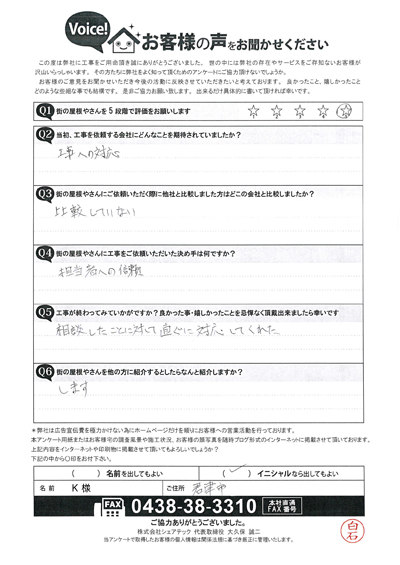 Voice!
お客様の声をお聞かせください
この度は弊社に工事をご用命頂き誠にありがとうございました。世の中には弊社の存在やサービスをご存知ないお客様が
沢山いらっしゃいます。その方たちに弊社をよく知って頂くためのアンケートにご協力頂けないでしょうか。
お客様のご意見をお聞かせいただき今後の活動に反映させていただきたいと考えております。良かったこと、嬉しかったこと
どのような些細な事でも結構です。是非ご協力お願い致します。出来るだけ具体的に書いて頂ければ幸いです。
Q1 街の屋根やさんを5段階で評価をお願いします ☆ ☆ ☆ ☆ ☆
Q2 当初、工事を依頼する会社にどんなことを期待されていましたか?
工事への対応
Q3 街の屋根やさんにご依頼いただく際に他社と比較しました方はどこの会社と比較しましたか?
比較していない
Q4 街の屋根やさんに工事をご依頼いただいた決め手は何ですか?
担当者への信頼
Q5 工事が終わってみていかがですか?良かった事・嬉しかったことを忌憚なく頂戴出来ましたら幸いです
相談したことに対して直ぐに対応してくれた
Q6 街の屋根やさんを他の方に紹介するとしたらなんと紹介しますか?
します
*弊社は広告宣伝費を極力かけない為にホームページだけを頼りにお客様への営業活動を行っております。
本アンケート用紙またはお客様宅の調査風景や施工状況、お客様の顔写真を随時ブログ形式のインターネットに掲載させて頂いております。
上記内容をインターネットや印刷物に掲載させて頂いてもよろしいでしょうか?
下記の中から〇印をお付け下さい。
( ) 名前を出してもよい ( ✓ ) イニシャルなら出してもよい
名前 K様 ご住所 君津市
FAX 0438-38-3310 本社直通 FAX番号
ご協力ありがとうございました。
株式会社シェアテック 代表取締役 大久保 誠二
当アンケートで取得したお客様の個人情報は関係法規に基づき厳正に管理いたします。
白石